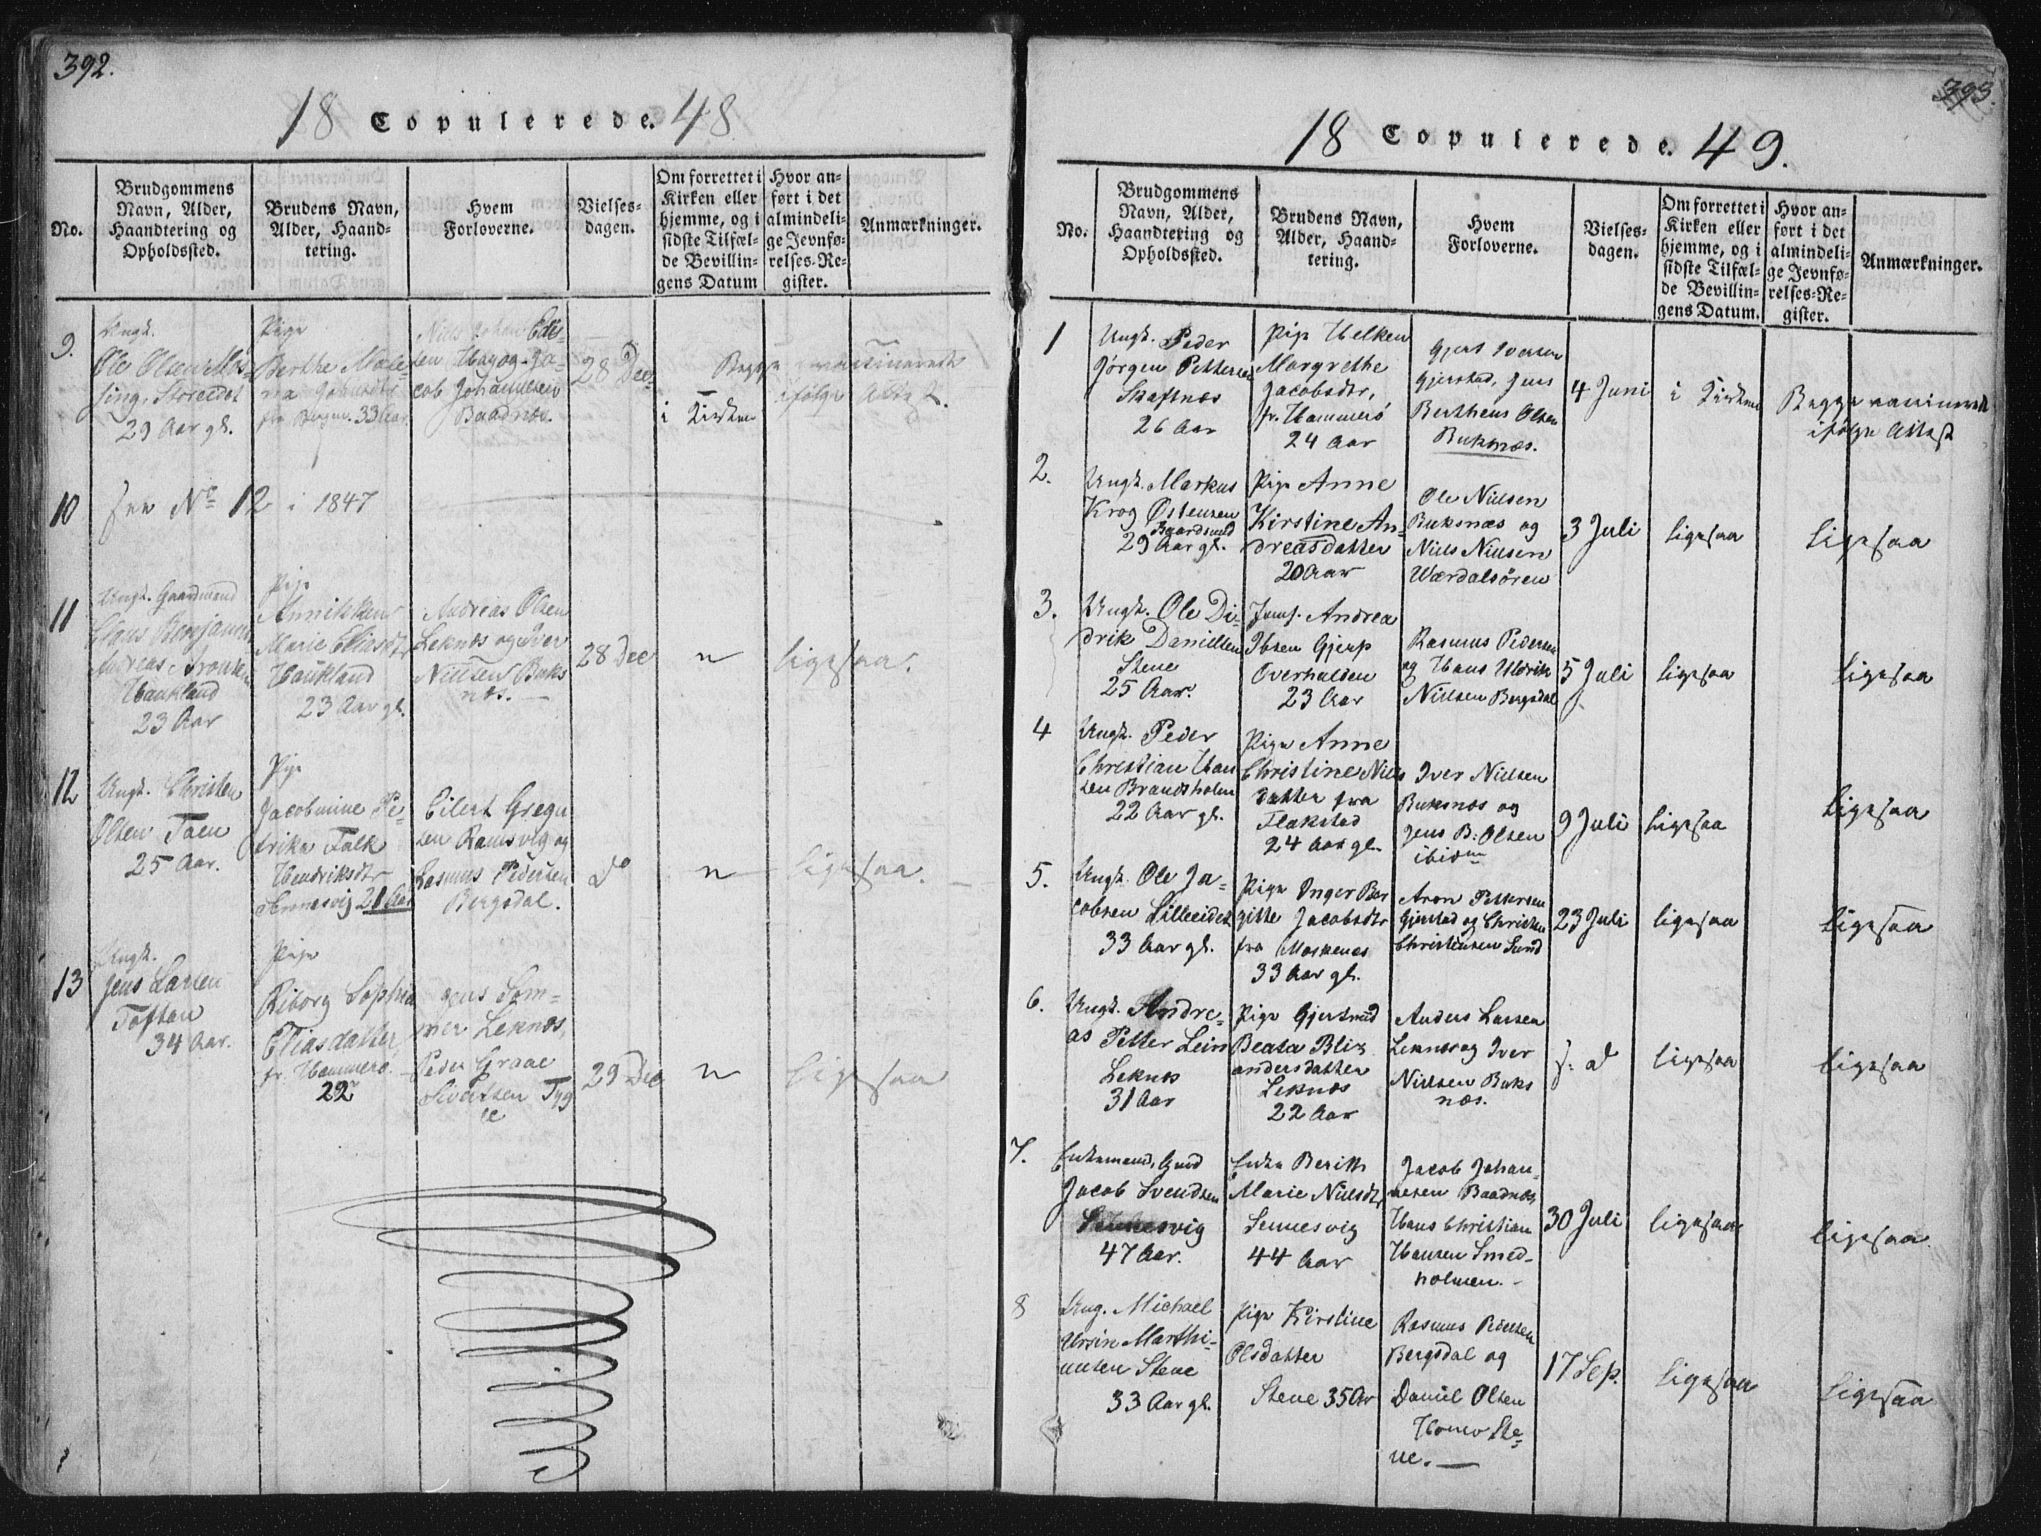 392.
18 Copulerede. 48
No.
Brudgommens
Navn, Alder,
Haandtering og
Opholdssted.
Brudens Navn,
Alder, Haand-
tering.
Hvem
Forloverne.
Vielses-
dagen.
Om forrettet i
Kirken eller
hjemme, og i
sidste Tilfæl-
de Bevillin-
gens Datum
Hvor an-
ført i det
almindeli-
ge Jevnfø-
relses-Re-
gister.
Anmærkninger.
9.
Ungk.
Ole Olsen
29 Aar gl.
Pige
Berthe
33 Aar
Niels Johan
cob Johannesen
Baadnæs.
28 Dec
i Kirken
Begge vaccinerede
ifølge Attest.
10
See No 12 i 1847
11
Ungk. Gaardmand
Andreas
Haukland
23 Aar
Pige
Annikken
Marie Eliasdtr
Haukland
23 Aar gl.
Andreas Olsen
Leknes og Iver
Nielsen Buks
næs. —
28 Dec
"
ligesaa.
12
Ungk. Christen
Olsen Taen
25 Aar.
Pige
Jacobmine Pe-
trika Falk
Hendriksdtr
Sennesvig 21 Aar
Eilert Gregu
sen Ramsvig og
Rasmus Pedersen
Bergsdal.
do
"
ligesaa.
13
Ungk.
Jens Larsen
Toften
34 Aar.
Pige
Kiborg Sophia
Eliasdatter,
fr. Hammerø
22
Jens Som-
mer Leknes,
Peder Graae
Sivertsen Tyg
e
29 Dec
"
ligesaa
393.
18 Copulerede. 49.
No.
Brudgommens
Navn, Alder,
Haandtering og
Opholdssted.
Brudens Navn,
Alder, Haand-
tering.
Hvem
Forloverne.
Vielses-
dagen.
Om forrettet i
Kirken eller
hjemme, og i
sidste Tilfæl-
de Bevillin-
gens Datum.
Hvor an-
ført i det
almindeli-
ge Jevnfø-
relses-Re-
gister.
Anmærkninger.
1
Ungk. Peder
Jørgen Pettersen
Skaftnæs
26 Aar
Pige Helken
Margrethe
Jacobsdtr,
fr. Hammerø
24 Aar
Gjert Iversen
Gjerstad, Jens
Bertheus Olsen
Buknæs.
4 Juni
i Kirken
Begge vaccinerede
ifølge Attest
2.
Ungk. Markus
Krog Østensen
Baardsund
29 Aar gl.
Pige Anne
Kirstine An-
dreasdatter
20 Aar
Ole Nielsen
Buksnæs og
Niels Nielsen
Wærdalsören
3 Juli
ligesaa
ligesaa
3.
Ungk. Ole Di-
drik Danielsen
Stene
25 Aar.
Jomf. Andrea
Ibsen Gjerp
Overhalden
23 Aar
Rasmus Pedersen
og Hans Uldrik
Nielsen Bergsdal
5 Juli
ligesaa
ligesaa
4
Ungk. Peder
Christian Han
sen Brandsholm
22 Aar gl.
Pige Anne
Christine Niels
datter fra
Flakstad
24 Aar gl.
Iver Nielsen
Buksnæs og
Jens B: Olsen
ibidm
9 Juli
ligesaa
ligesaa
5.
Ungk. Ole Ja-
cobsen Lilleeidet
33 Aar gl.
Pige Inger Ber
gitte Jacobsdtr
fra Moskenes
33 Aar gl.
Aron Pettersen
Gjerstad og Christen
Christensen Sund
23 Juli
ligesaa
ligesaa
6.
Ungk. Andre-
as Petter Lein
Leknes
31 Aar
Pige Gjertrud
Beata Blix
andersdatter
Leknes
22 Aar
Anders Larsen
Leknes og Iver
Nielsen Buks
næs.
s. d
ligesaa
ligesaa
7.
Enkemand,
Jacob Svendsen
Sennesvig
47 Aar.
Enke Berith
Marie Nielsdtr
Sennesvig
44 Aar
Jacob Johan-
nesen Baadnæs,
Hans Christian
Hansen Smed-
holmen. -
30 Juli
ligesaa
ligesaa.
8
Ung. Michael
Ursin Marthi-
nusen Stene
33 Aar gl.
Pige Kirstine
Olsdatter
Stene 35 Ar
Rasmus
Bergsdal og
Daniel Olsen
Ste-
ne. —
17 Sep.
ligesaa
ligesaa